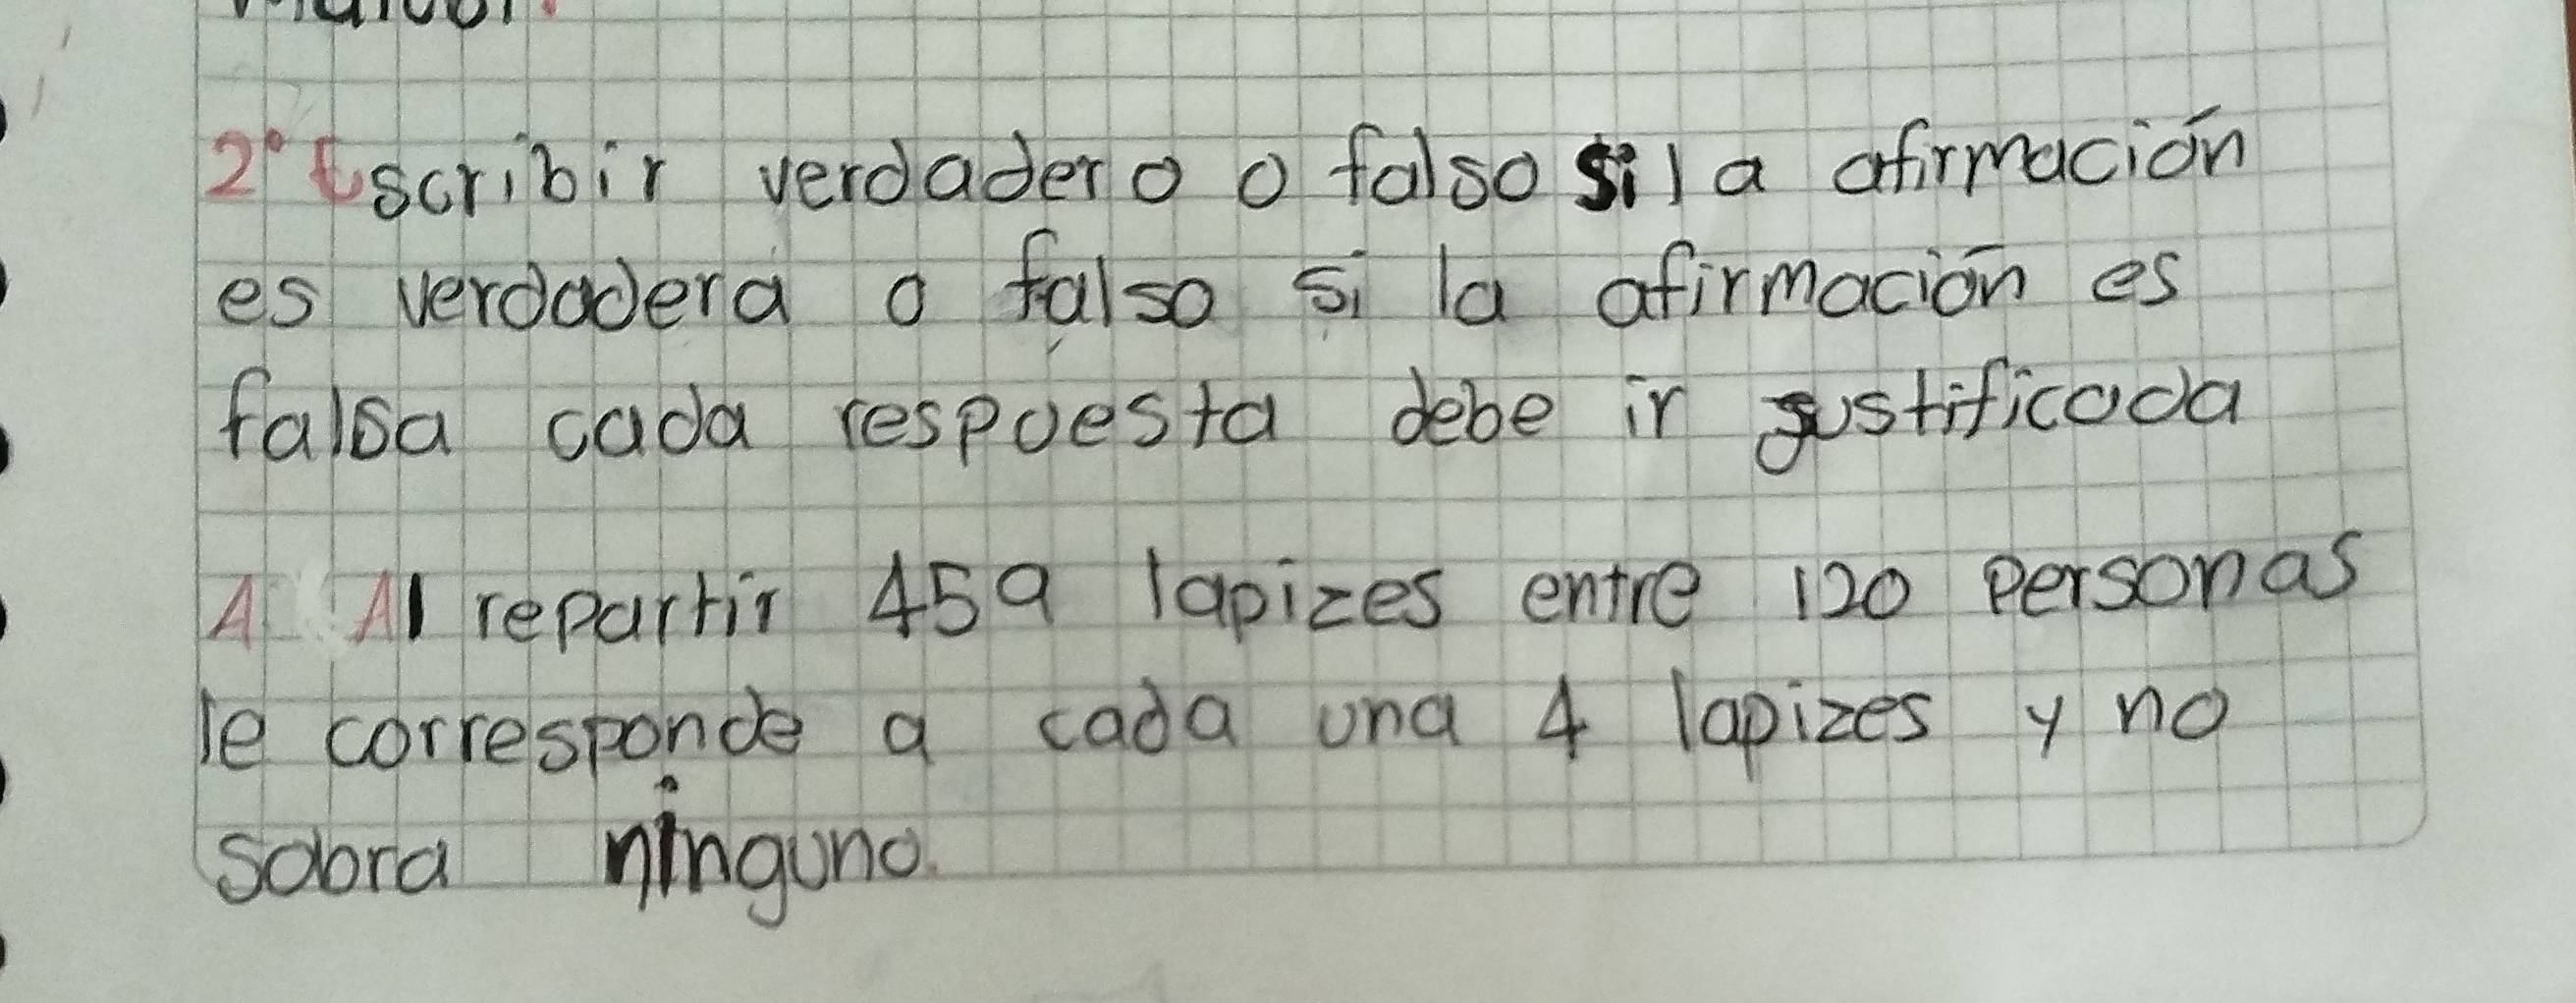 2° Escribir verdadero o falso si la afirmación
es verdadera o falso si la afirmación es
falsa cada respuesta debe ir justificada
A Al repartir 459 lapizes entre 120 personas
le corresponde a cada una 4 lapizes y no
sobra ninguno.